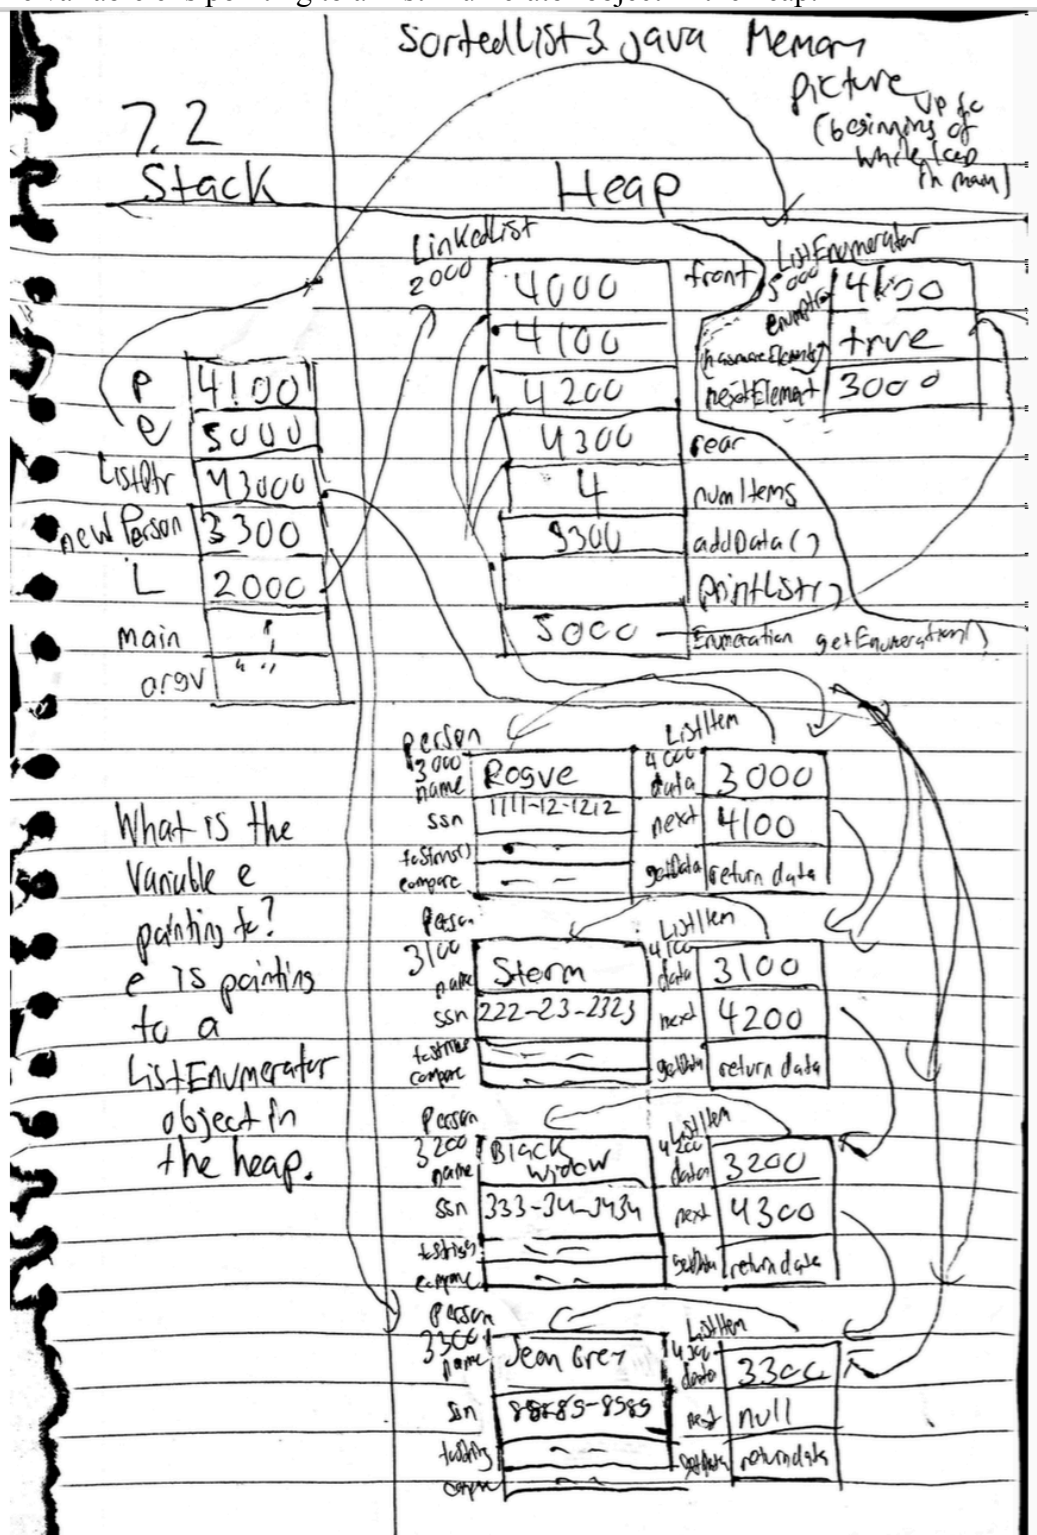 SortedList3.java Memory
picture
up to
(beginning of
while loop
in main)
7.2
Stack
Heap
LinkedList
2000
4000
front
4100
4200
4300
rear
4
numItems
3300
addData()
printList()
5000
Enumeration getEnumeration()
ListEnumerator
5000
4100
(hasmoreElements)
true
nextElement
3000
p
4100
e
5000
ListPtr
43000
newPerson
3300
L
2000
main
argv
What is the
variable e
pointing to?
e is pointing
to a
ListEnumerator
object in
the heap.
person
3000
name
Rogue
ssn
1111-12-1212
toString()
compare
ListItem
4000
data
3000
next
4100
getData
return data
person
3100
name
Storm
ssn
222-23-2323
compare
ListItem
4100
data
3100
next
4200
getData
return data
person
3200
name
Black
Widow
ssn
333-34-3434
toString
compare
ListItem
4200
data
3200
next
4300
getData
return data
person
3300
name
Jean Grey
ssn
toString
ListItem
4300
data
3300
next
null
getData
return data